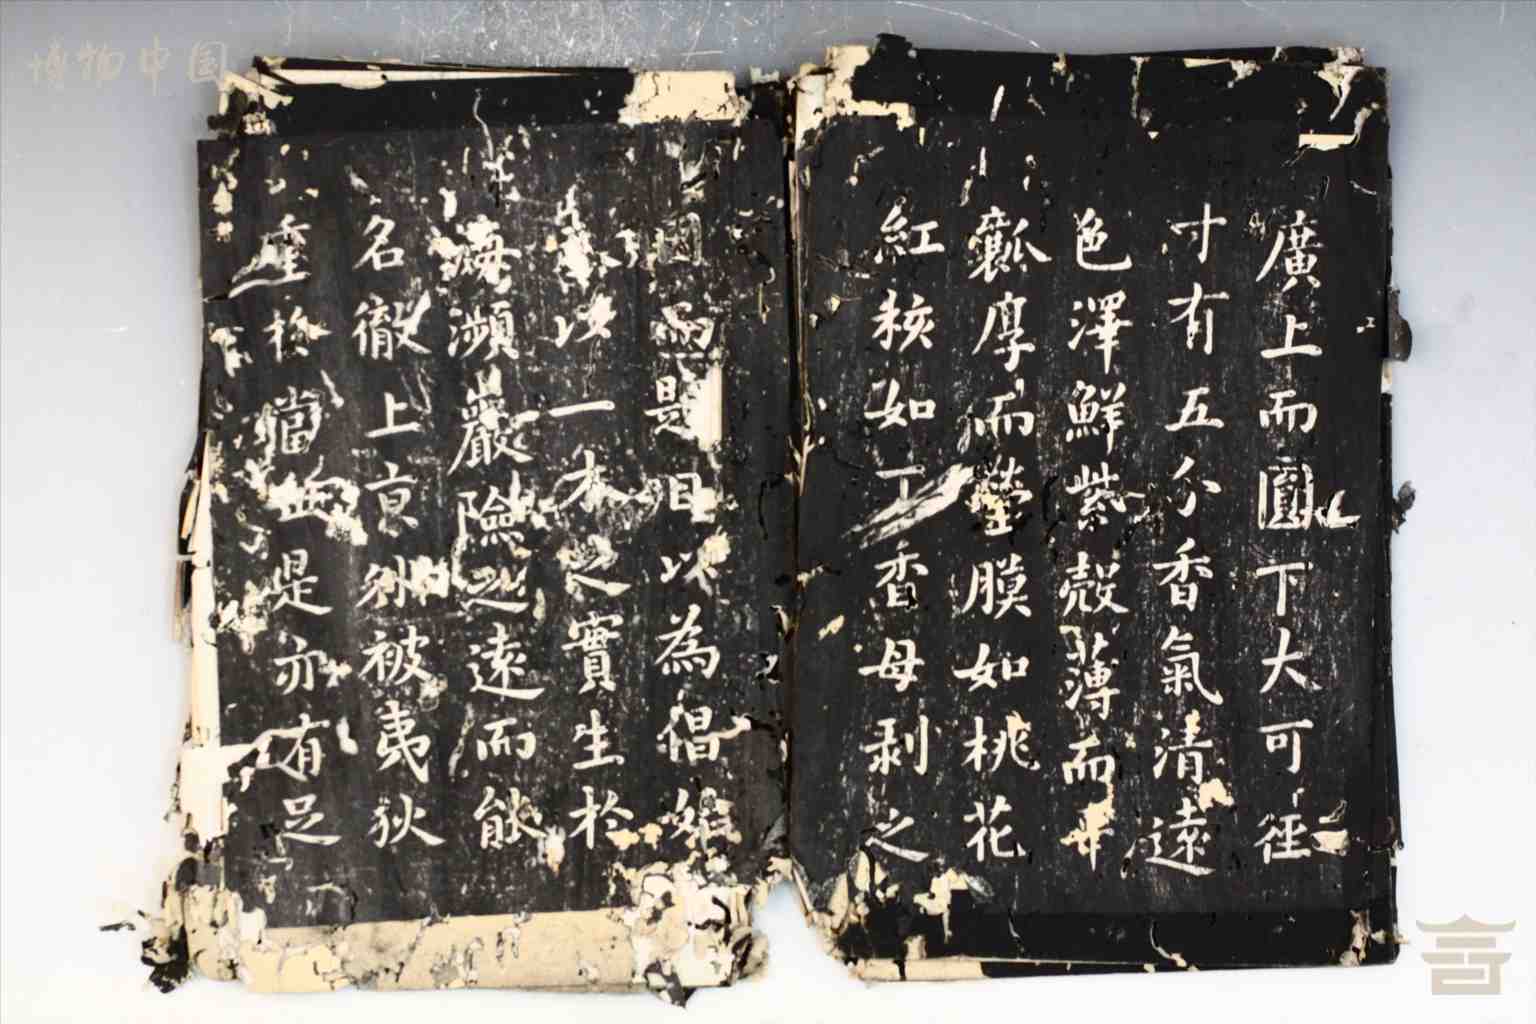 博物中国
廣上而圓下大可徑
寸有五分香氣清遠
色澤鮮紫殼薄而平
瓤厚而瑩膜如桃花
紅核如丁香母剥之
因而題目以為倡始
以一木之實生於
海瀕巖險之遠而能
名徹上京外被夷狄
重於當世是亦有足